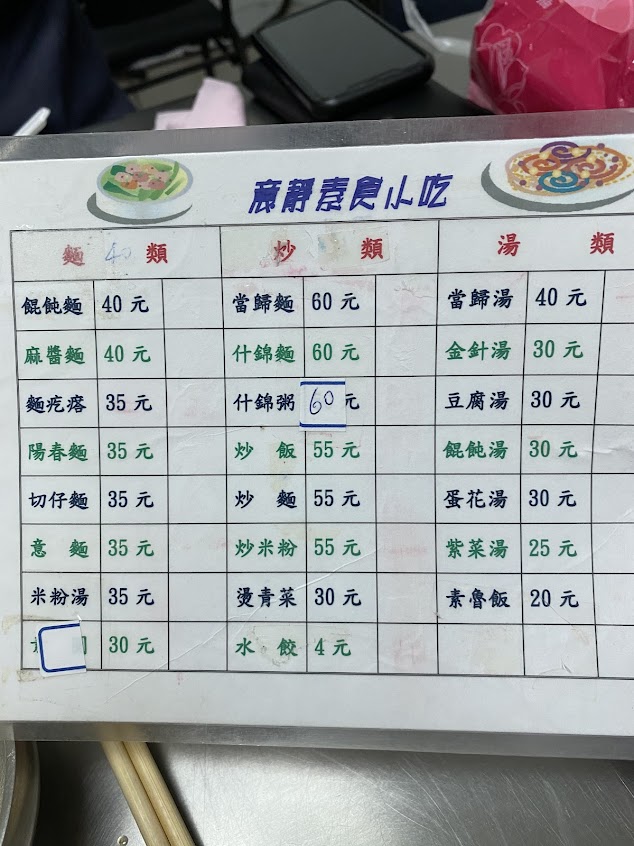 靜素食小吃
麵 40 類 炒 類 湯 類
餛飩麵 40 元 當歸麵 60 元 當歸湯 40 元
麻醬麵 40 元 什錦麵 60 元 金針湯 30 元
麵疙瘩 35 元 什錦粥 60 元 豆腐湯 30 元
陽春麵 35 元 炒 飯 55 元 餛飩湯 30 元
切仔麵 35 元 炒 麵 55 元 蛋花湯 30 元
意 麵 35 元 炒米粉 55 元 紫菜湯 25 元
米粉湯 35 元 燙青菜 30 元 素魯飯 20 元
30 元 水 餃 4 元